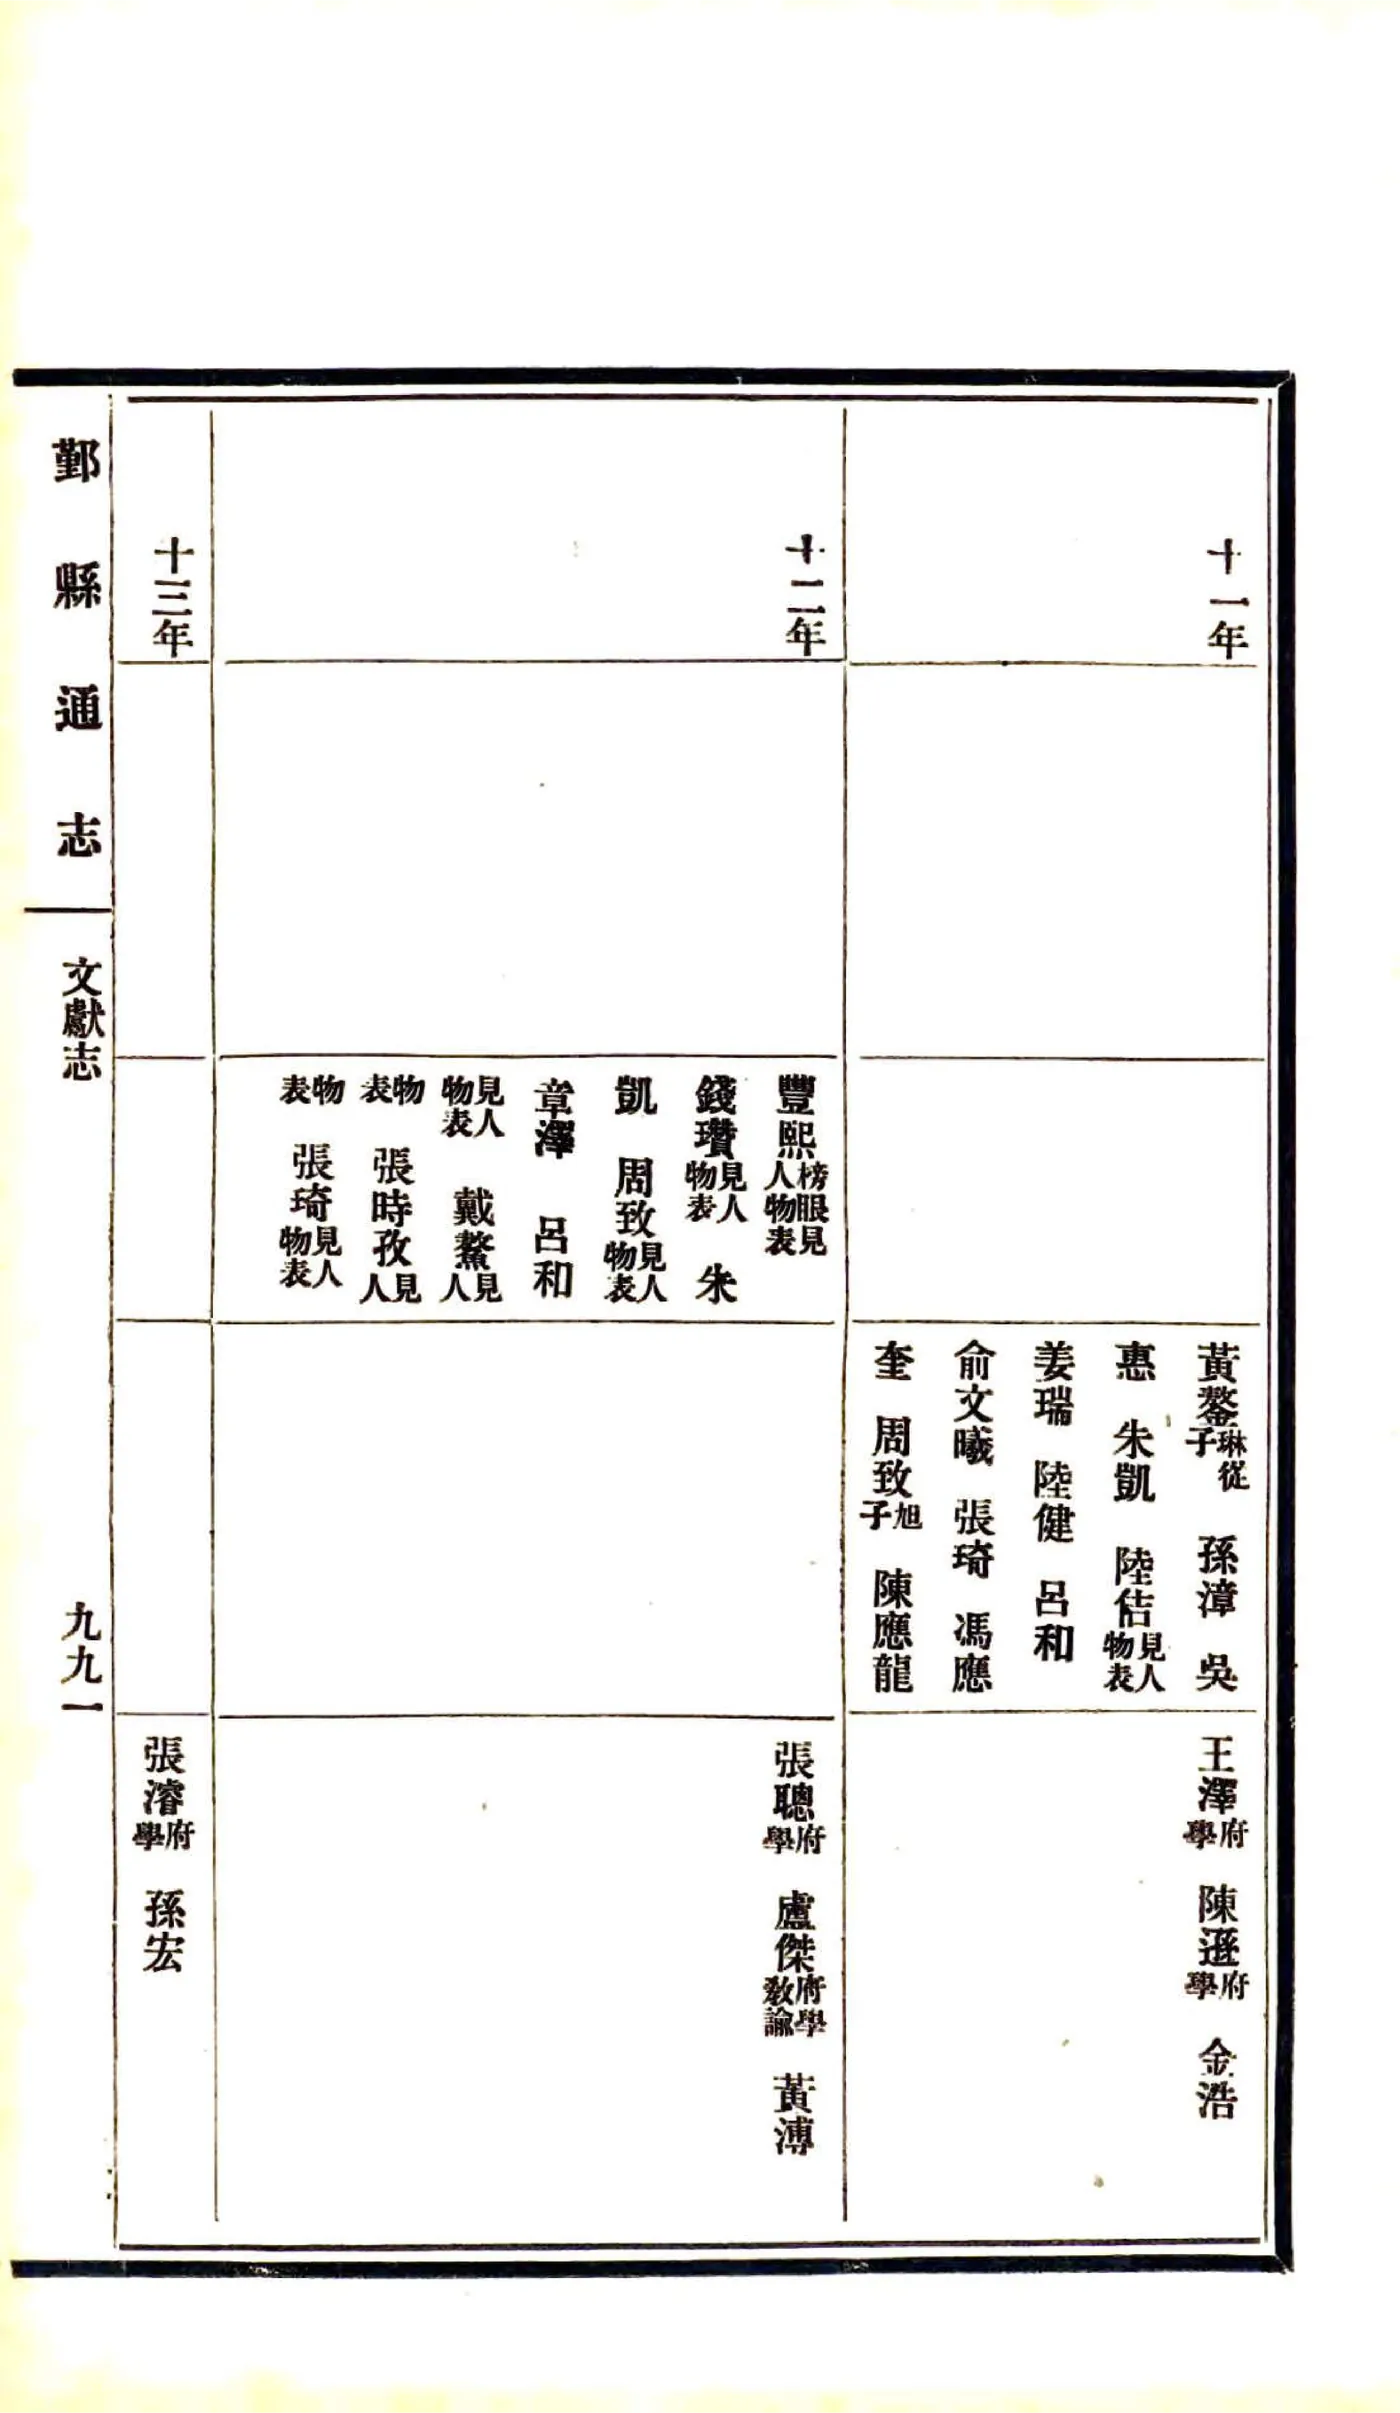 十一年
黃鏊琳從子　孫漳　吳
惠　朱凱　陸佶見人物表
姜瑞　陸健　呂和
俞文曦　張琦　馮應
奎　周致旭子　陳應龍
王澤府學　陳遜府學　金浩
十二年
豐熙榜眼見人物表
錢瓚見人物表　朱
凱　周致見人物表
章澤　呂和
見人物表　戴鰲見人
物表　張時孜見人
物表　張琦見人物表
張聰府學　盧傑府學教諭　黃溥
十三年
張濬府學　孫宏
鄞縣通志
文獻志
九九一